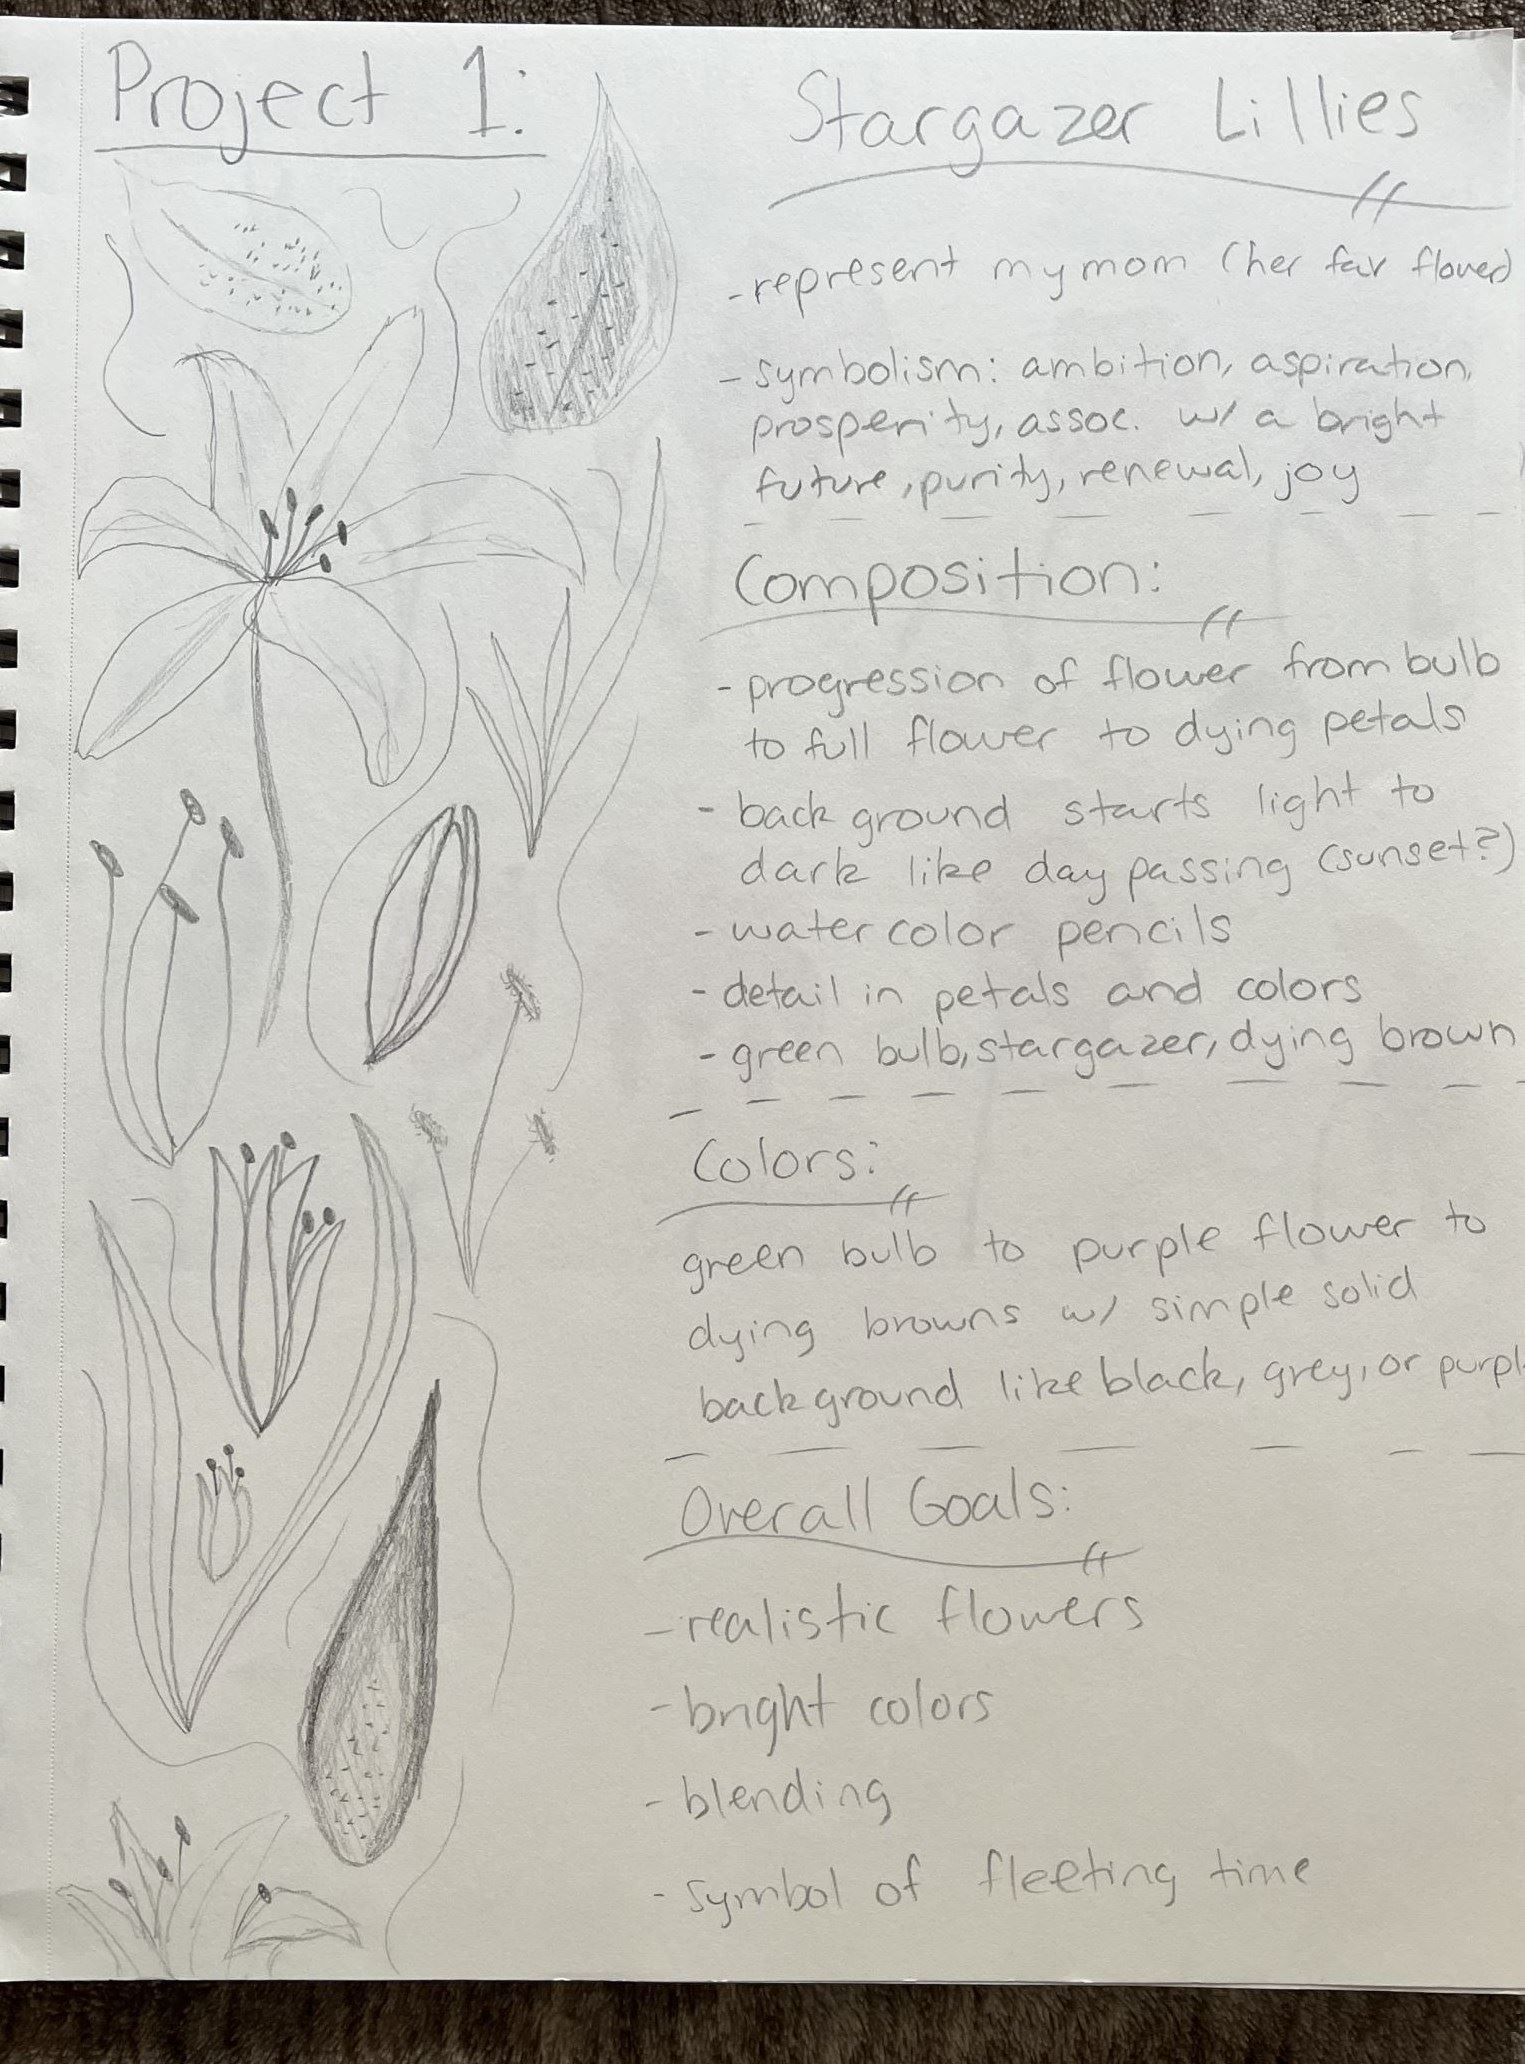 Project 1:
Stargazer Lillies
- represent my mom (her fav flower)
- symbolism: ambition, aspiration,
prosperity, assoc. w/ a bright
future, purity, renewal, joy
Composition:
- progression of flower from bulb
to full flower to dying petals
- background starts light to
dark like day passing (sunset?)
- watercolor pencils
- detail in petals and colors
- green bulb, stargazer, dying brown
Colors:
green bulb to purple flower to
dying browns w/ simple solid
background like black, grey, or purpl
Overall Goals:
- realistic flowers
- bright colors
- blending
- symbol of fleeting time